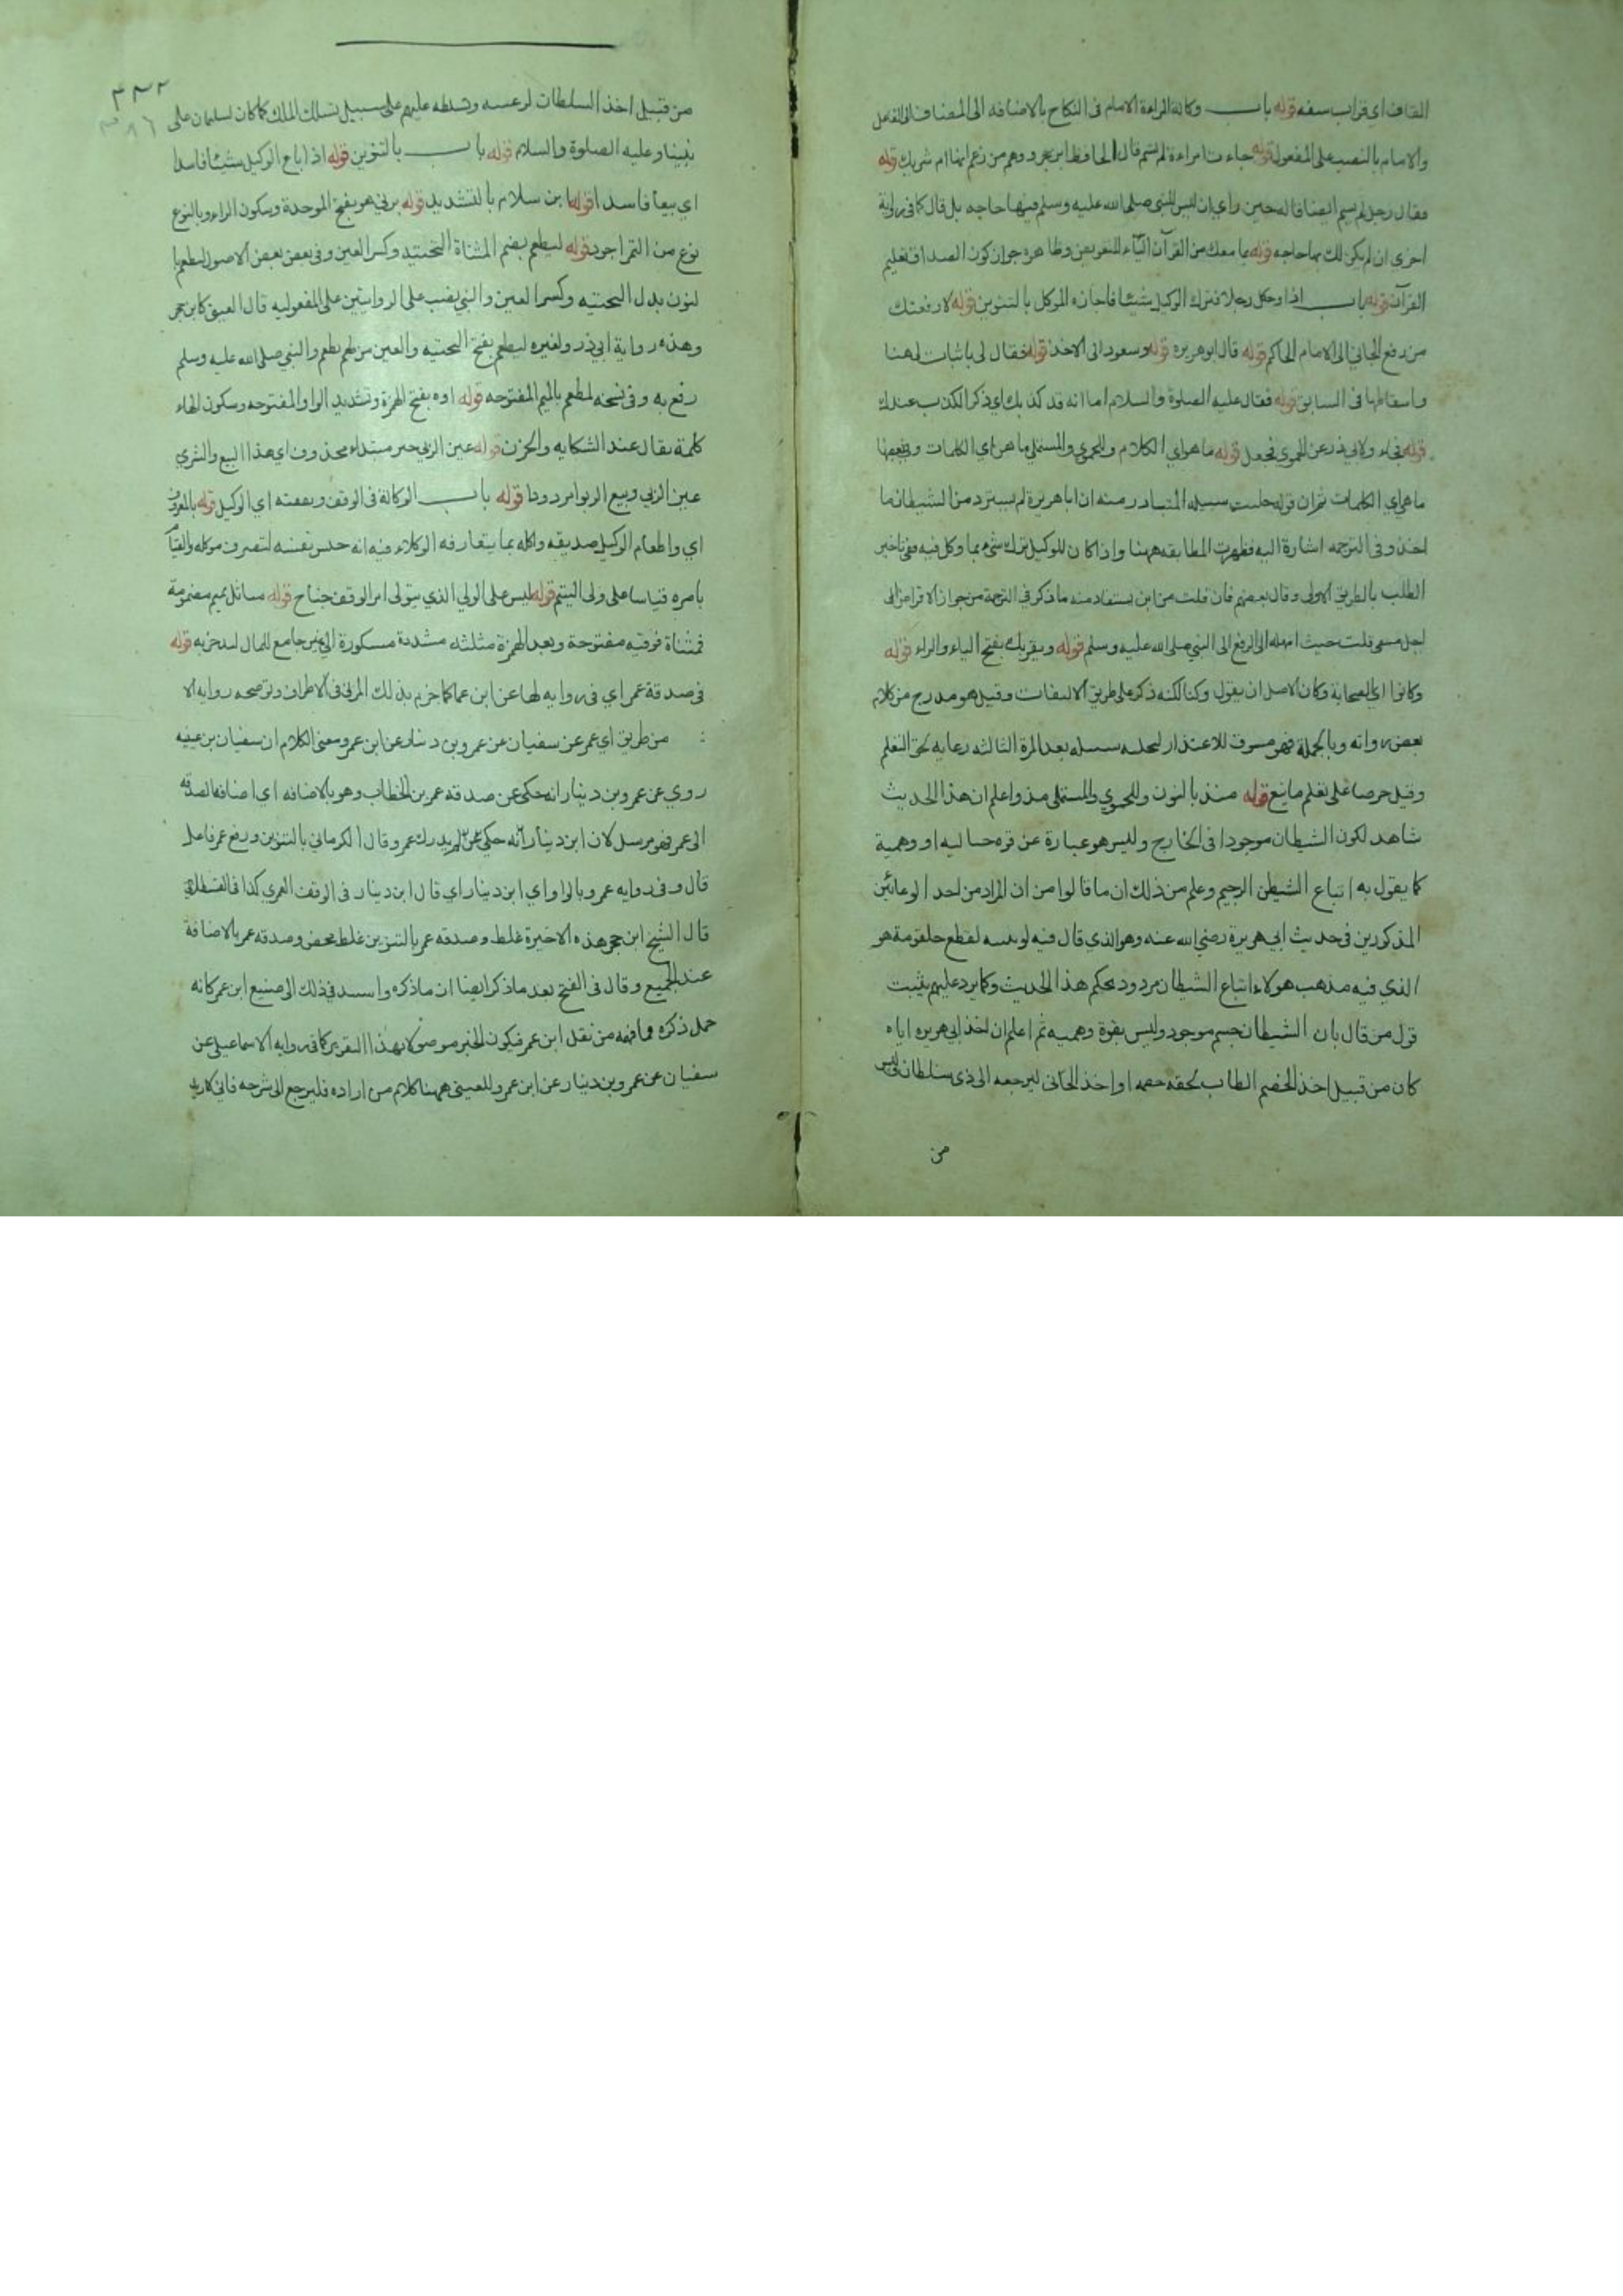 القاف اي قراب سفه قوله باب وكالة المراءة الامام فى النكاح بالاضافه الى المضاف الى الفاعل
والامام بالنصب على المفعول قوله جاءت امراءة لم تسم قال الحافظ ابن حجر ووهم من زعم انها ام شريك قوله
فقال رجل لم يسم ايضا قاله حين راي ان ليس للنبى صلى الله عليه وسلم فيها حاجه بل قال كما فى رواية
اخرى ان لم يكن لك بها حاجه قوله بما معك من القرآن الباء للتعويض وظاهره جواز كون الصداق تعليم
القرآن قوله باب اذا وكل رجلا فترك الوكيل شيئا فاجازه الموكل بالتنوين قوله لارفعنك
من رفع الجاني الى الامام الحاكم قوله قال ابو هريره قوله وسعود انى الاخذ قوله فقال لى باثبات لى هنا
واسقاطها فى السابق قوله فقال عليه الصلوة والسلام اما انه قد كذبك اي ذكر الكذب عندك
قوله ولابي ذر عن الحموى فجعل قوله ما هو اي الكلام وللحموي والمستملى ما هن اي الكلمات وفى بعضها
ما هي اي الكلمات ثم ان قوله خليت سبيله المتبادر منه ان ابا هريرة لم يسترد من الشيطان ما
اخذ وفى الترجمه اشارة اليه فظهرت المطابقه ههنا واذا كان للوكيل ترك شىء مما وكل فيه ففى تاخير
الطلب بالطريق الاولى وقال بعضهم فان قلت من اين يستفاد منه ما ذكر فى الترجمة من جواز الاقراض الى
اجل مسمى قلت حيث امهله الى الرفع الى النبى صلى الله عليه وسلم قوله ويقربك بفتح الياء والراء قوله
وكانوا اي الصحابة وكان الاصل ان يقول وكنا لكنه ذكر على طريق الالتفات وقيل هو مدرج من كلام
بعض رواته وبالجملة فهو مسوق للاعتذار لتخليه سبيله بعد المرة الثالثه رعايه لحق التعلم
وقيل حرصا على تعلم ما ينفع قوله منذ بالنون وللحموي والمستملى مذ واعلم ان هذا الحديث
شاهد لكون الشيطان موجودا فى الخارج وليس هو عبارة عن قوه حساليه او وهمية
كما يقول به اتباع الشيطن الرجيم وعلم من ذلك ان ما قالوا من ان المراد من احد الوعائين
المذكورين فى حديث ابي هريرة رضي الله عنه وهو الذي قال فيه لو بسه لقطع حلقومة هو
الذي فيه مذهب هولاء اتباع الشيطان مردود بحكم هذا الحديث وكما يرد عليهم يثبت
قول من قال بان الشيطان جسم موجود وليس بقوة وهميه ثم اعلم ان اخذ ابي هريره اياه
كان من قبيل اخذ الخصم الطالب لحقه خصمه او اخذ الجانى ليرجعه الى ذى سلطان ليس
من
٣٣٢
٣٨٦
من قبيل اخذ السلطان لرعيته وتسلطه عليهم على سبيل تسلك الملك كما كان لسليمان على
نبينا وعليه الصلوة والسلام قوله باب بالتنوين قوله اذا باع الوكيل شيئا فاسدا
اي بيعا فاسدا قوله ابن سلام بالتشديد قوله برني هو بفتح الموحدة وسكون الراء وبالنوع
نوع من التمر اجود قوله ليطعم بضم المثناة التحتيه وكسر العين وفى بعض بعض الاصول لنطعم با
لنون بدل التحتيه وكسر العين والنبي بنصب على الروايتين على المفعوليه قال العينى كابن حجر
وهذه رواية ابي ذر ولغيره ليطعم بفتح التحتيه والعين من طعم يطعم والنبي صلى الله عليه وسلم
رفع به وفى نسخه لمطعم بالميم المفتوحه قوله اوه بفتح الهمزة وتشديد الواو المفتوحه وسكون الهاء
كلمة يقال عند الشكايه والحزن قوله عين الربي خبر مبتداء محذوف اي هذا البيع والشري
عين الربي وبيع الربوا مردودا قوله باب الوكالة فى الوقف ونفقته اي الوكيل قوله بالمعروف
اي واطعام الوكيل صديقه واكله بما يتعارفه الوكلاء فيه انه حبس نفسه لتصرف موكله والقيام
بامره قياسا على ولى اليتيم قوله ليس على الولي الذي يتولى امر الوقف جناح قوله متاثل بميم مضمومة
فمثناة فوقيه مفتوحة وبعد الهمزة مثلثه مشددة مكسورة اي غير جامع للمال لنحزبه قوله
فى صدقة عمر اي فى روايه لها عن ابن عمر كما جزم بذلك المزنى فى الاطراف وتوضحه روايه الا
: من طريق اي عمر عن سفيان عن عمرو بن دينار عن ابن عمر ومعنى الكلام ان سفيان بن عيينه
روي عن عمرو بن دينار انه حكى عن صدقه عمر بن الخطاب وهو بالاضافه اي اضافه الصدقه
الى عمر فهو مرسل لان ابن دينار انه حكى عن لم يدرك عمر وقال الكرماني بالتنوين ورفع عمر فاعل
قال وفى روايه عمرو بالواو اي ابن دينار اي قال ابن دينار فى الوقف العمري كذا فى القسطلاني
قال الشيخ ابن حجر هذه الاخيرة غلط وصدقه عمر بالتنوين غلط محض وصدقه عمر بالاضافة
عند الجميع وقال فى الفتح بعد ما ذكر ايضا ان ما ذكره واسند فى ذلك الى صنيع ابن عمر كانه
حمل ذكره مما فهمه من نقل ابن عمر فيكون الخبر موصولا بهذا التقرير كما فى روايه الاسماعيلى عن
سفيان عن عمرو بن دينار عن ابن عمر وللعينى ههنا كلام من اراده فليرجع الى شرحه فانى كاريد